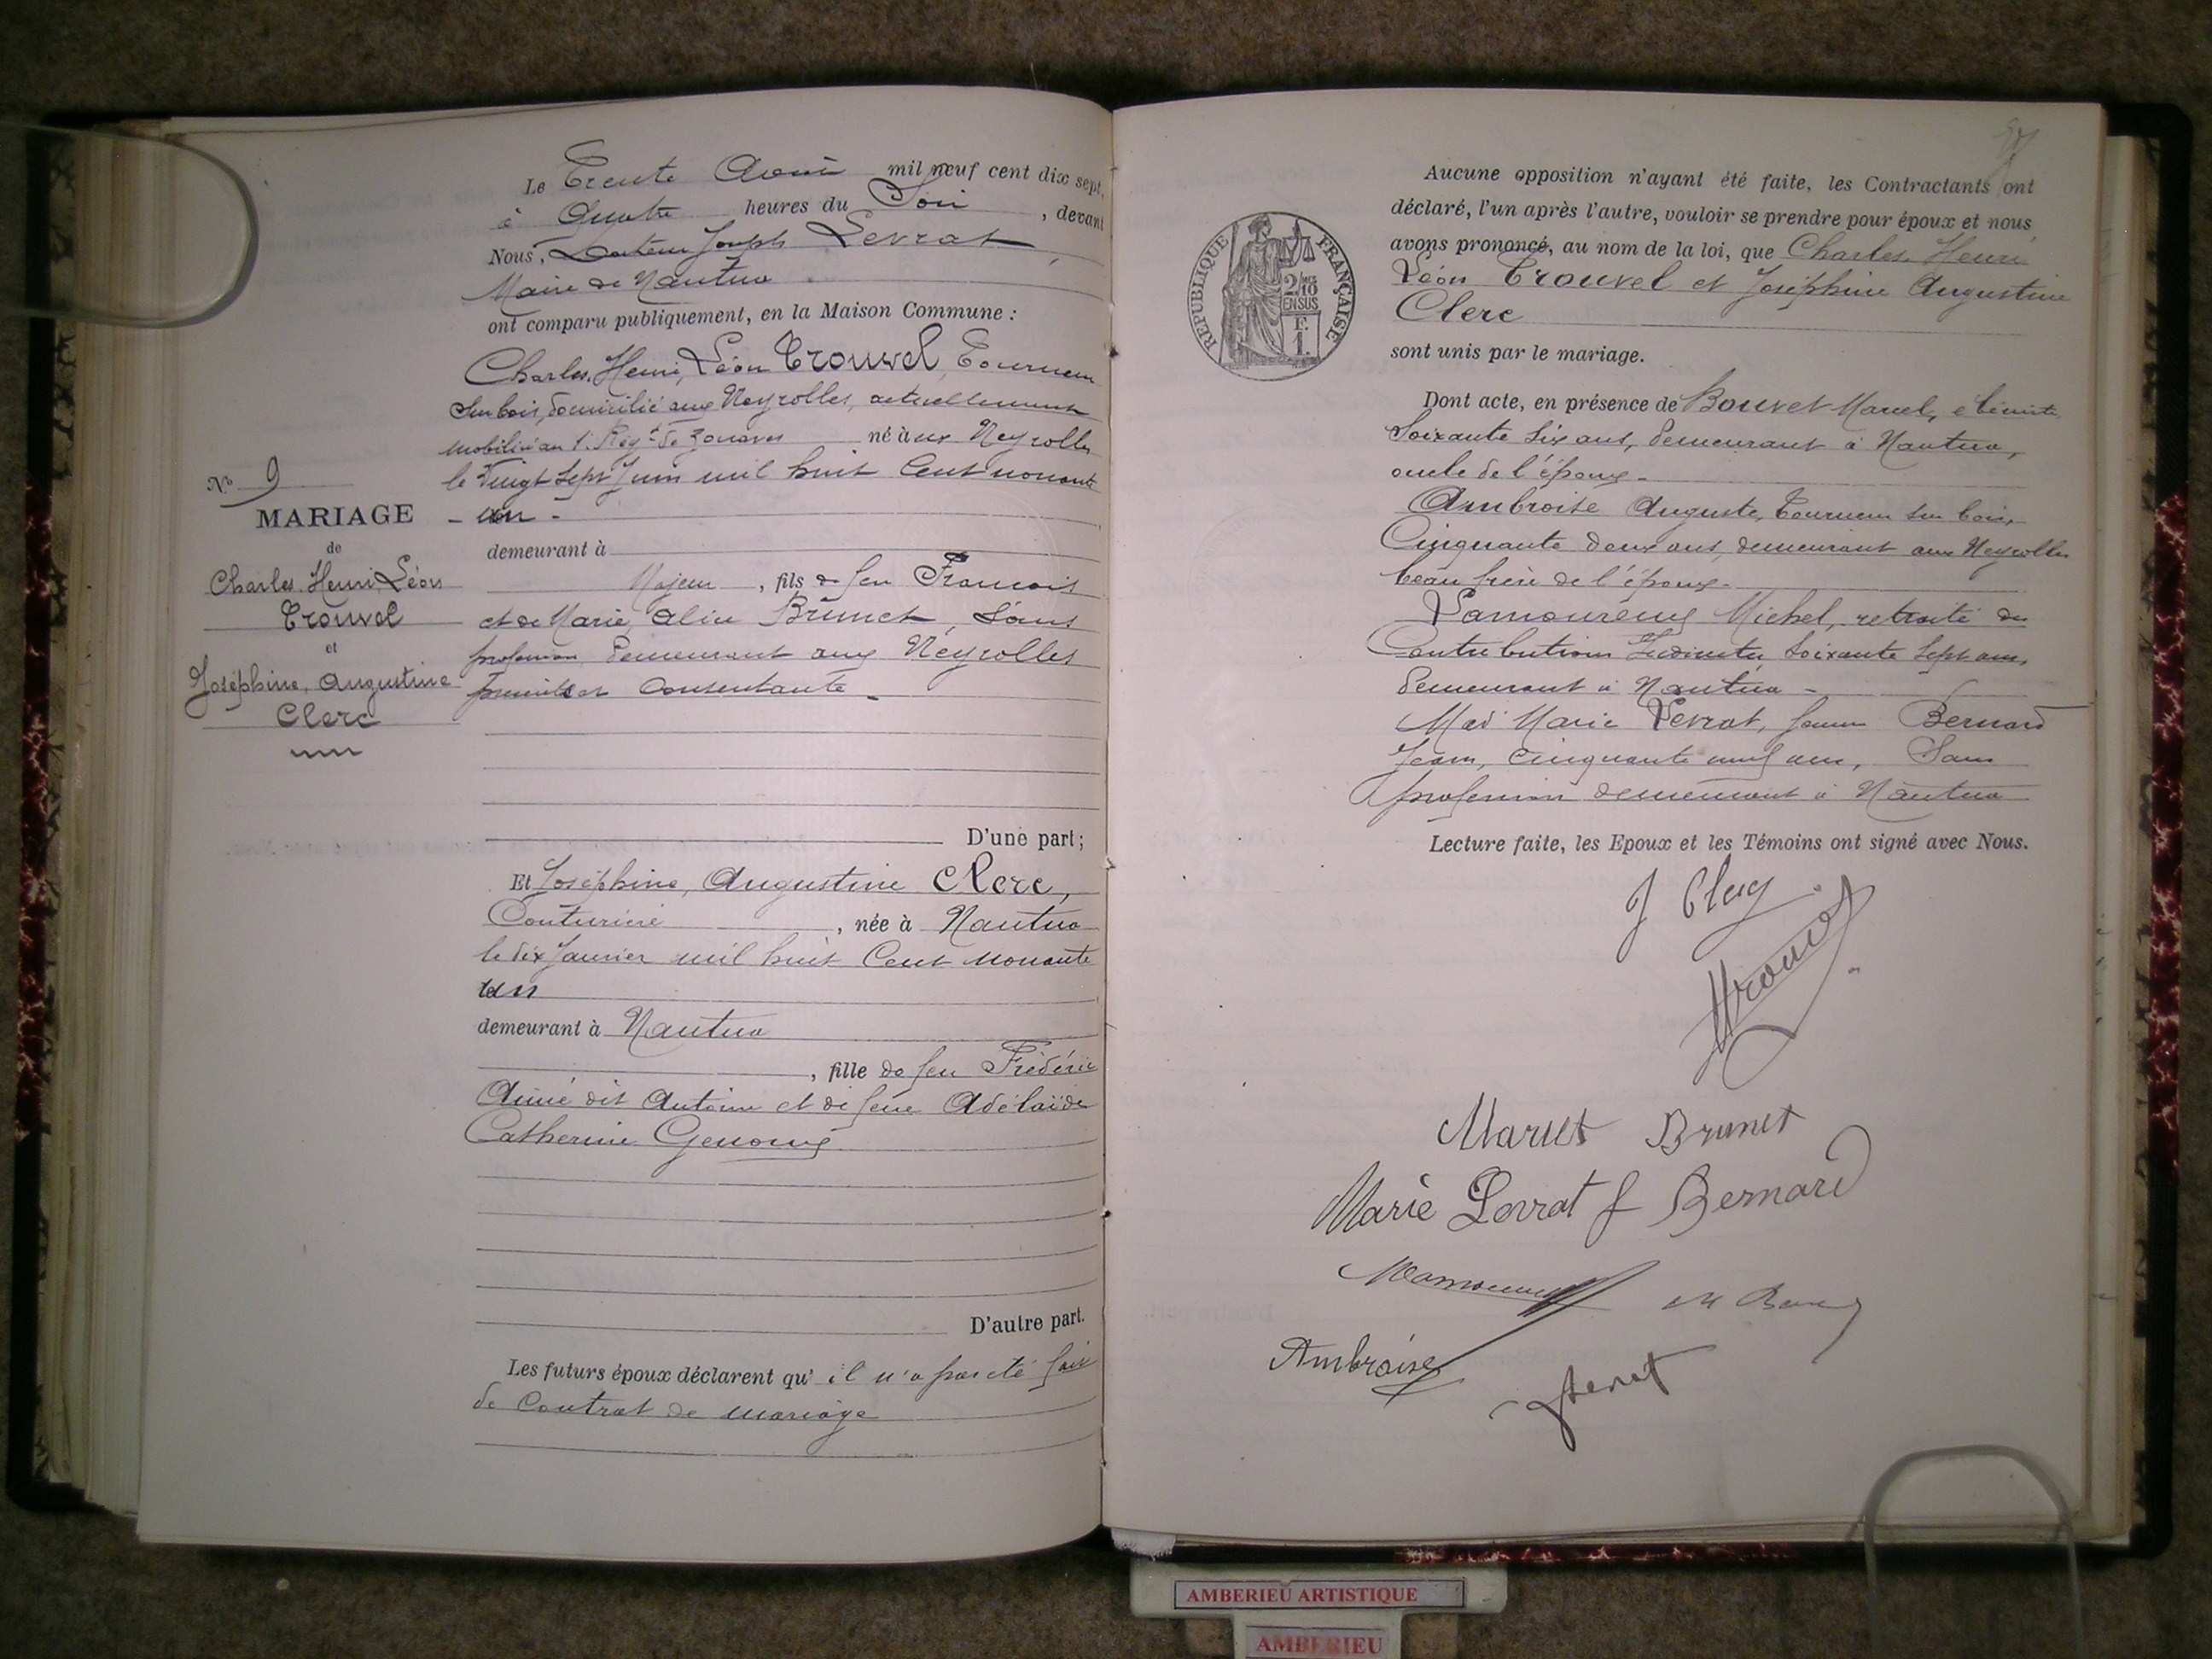 Le Trente Août mil neuf cent dix sept,
à Quatre heures du Soir, devant
Nous, Docteur Joseph Levrat,
Maire de Nantua
ont comparu publiquement, en la Maison Commune :
Charles, Henri, Léon Trouvel, Tourneur
sur bois, domicilié aux Neyrolles, actuellement
mobilisé au 1. Régt de Zouaves né aux Neyrolles
le Vingt Sept Juin mil huit Cent nonante
- un -
demeurant à
Majeur, fils de feu François
et de Marie, Alice Brunet, Sans
profession demeurant aux Neyrolles
présente et Consentante -
D'une part;
Et Joséphine, Augustine Clerc,
Couturière, née à Nantua
le dix Janvier mil huit Cent nonante
un
demeurant à Nantua
, fille de feu Frédéric
Aimé dit Antoine et de feue Adélaïde
Catherine
D'autre part.
Les futurs époux déclarent qu'il n'a pas été fait
de Contrat de mariage
No 9
MARIAGE
de
Charles Henri Léon
Trouvel
et
Joséphine, Augustine
Clerc
Aucune opposition n'ayant été faite, les Contractants ont
déclaré, l'un après l'autre, vouloir se prendre pour époux et nous
avons prononcé, au nom de la loi, que Charles, Henri
Léon Trouvel et Joséphine Augustine
Clerc
sont unis par le mariage.
Dont acte, en présence de Bouvet Marcel, ébéniste
Soixante Six ans, demeurant à Nantua,
oncle de l'époux -
Ambroise Auguste, Tourneur sur bois,
Cinquante deux ans, demeurant aux Neyrolles
beau frère de l'époux -
Lamoureux Michel, retraité des
Contributions Indirectes, Soixante Sept ans,
demeurant à Nantua -
Mad Marie Levrat, femme Bernard
Jean, Cinquante neuf ans, Sans
profession demeurant à Nantua
Lecture faite, les Epoux et les Témoins ont signé avec Nous.
J Clerc
Trouvel
Brunet
Marie Levrat f Bernard
Ambroise
REPUBLIQUE FRANÇAISE
2/10 EN SUS
F. 1.
AMBERIEU ARTISTIQUE
AMBERIEU